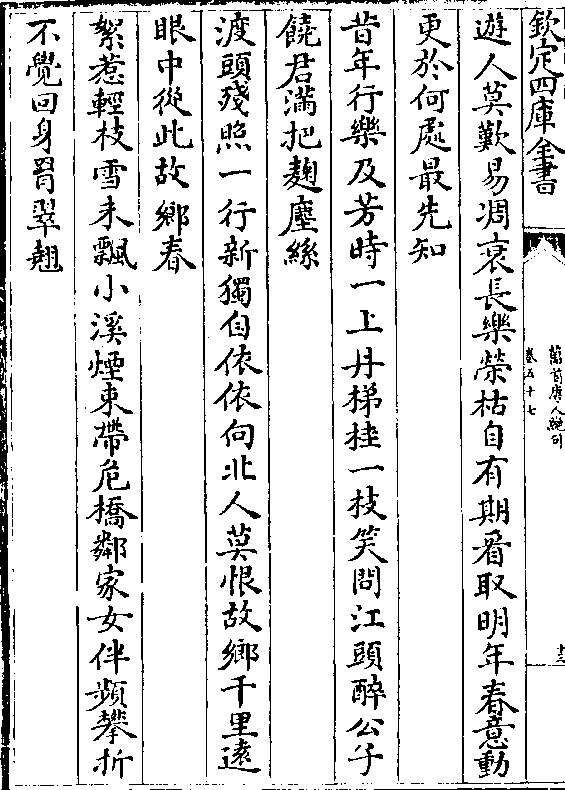 欽定四庫全書
萬首唐人絶句
卷五十七
遊人莫歎易凋衰長樂榮枯自有期看取明年春意動
更於何處最先知
昔年行樂及芳時一上丹梯桂一枝笑問江頭醉公子
饒君滿把麴塵絲
渡頭殘照一行新獨自依依向北人莫恨故鄉千里遠
眼中從此故鄉春
絮惹輕枝雪未飄小溪煙束帶危橋鄰家女伴頻攀折
不覺回身罥翠翹